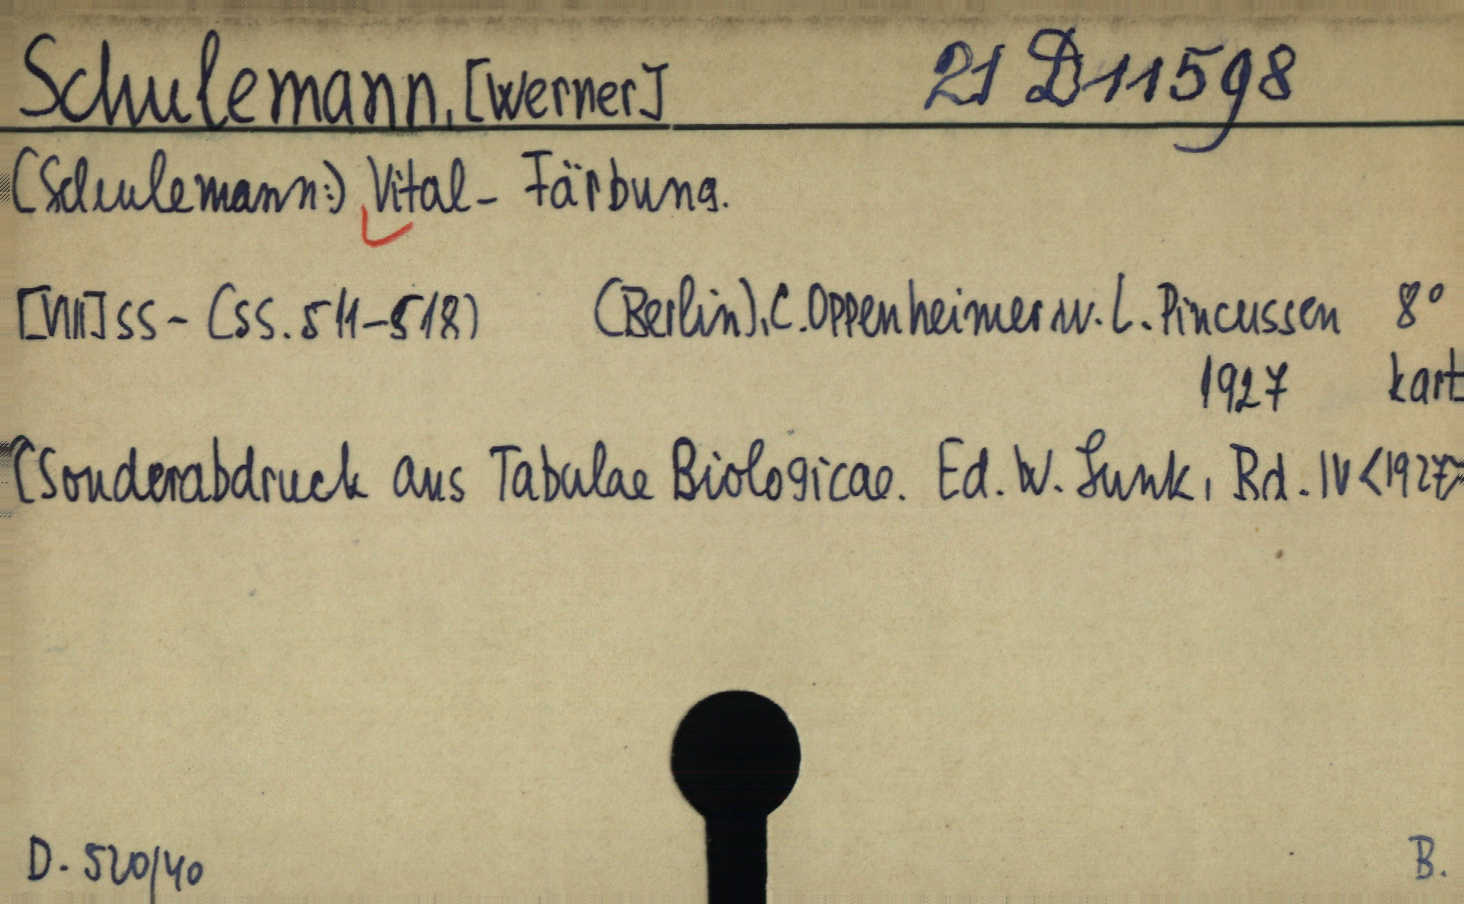 Schulemann, [Werner] 21 D 11598
(Schulemann:) Vital-Färbung.
[VIII] SS - (SS. 511-518) (Berlin), C. Oppenheimer u. L. Pincussen 8°
1927 kart
(Sonderabdruck aus Tabulae Biologicae. Ed. W. Junk, Bd. IV <1927>
D. 520/40 B.